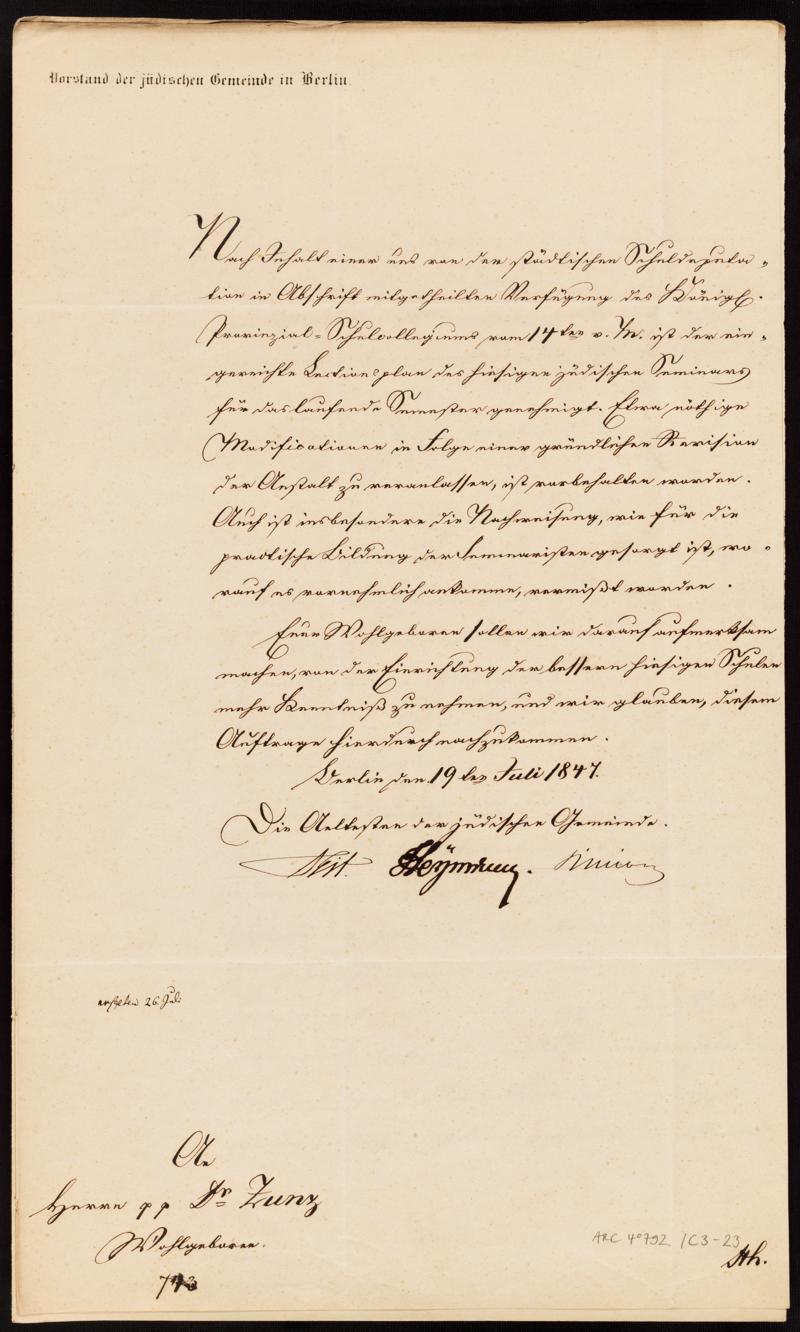 Vorstand der jüdischen Gemeinde in Berlin.
Nach Inhalt einer uns von der städtischen Schuldeputa-
tion in Abschrift mitgetheilten Verfügung des Königl.
Provinzial-Schulcollegiums vom 14ten v. M. ist der ein-
gereichte Lectionsplan des hiesigen jüdischen Seminars
für das laufende Semester genehmigt. Etwa nöthige
Modificationen in Folge einer gründlichen Revision
der Anstalt zu veranlassen, ist vorbehalten worden.
Auch ist insbesondere die Nachweisung, wie für die
practische Bildung der Seminaristen gesorgt ist, wo-
rauf es vornehmlich ankomme, vermißt worden.
Euer Wohlgeboren sollen wir darauf aufmerksam
machen, von der Einrichtung der bessern hiesigen Schulen
mehr Kenntniß zu nehmen, und wir glauben, diesem
Auftrage hierdurch nachzukommen.
Berlin den 19ten Juli 1847.
Die Aeltesten der jüdischen Gemeinde.
Veit. Heymann. Simion
erhalten 26. Juli
An
Herrn pp Dr Zunz
Wohlgeboren.
ARC 4°792 /C3-23